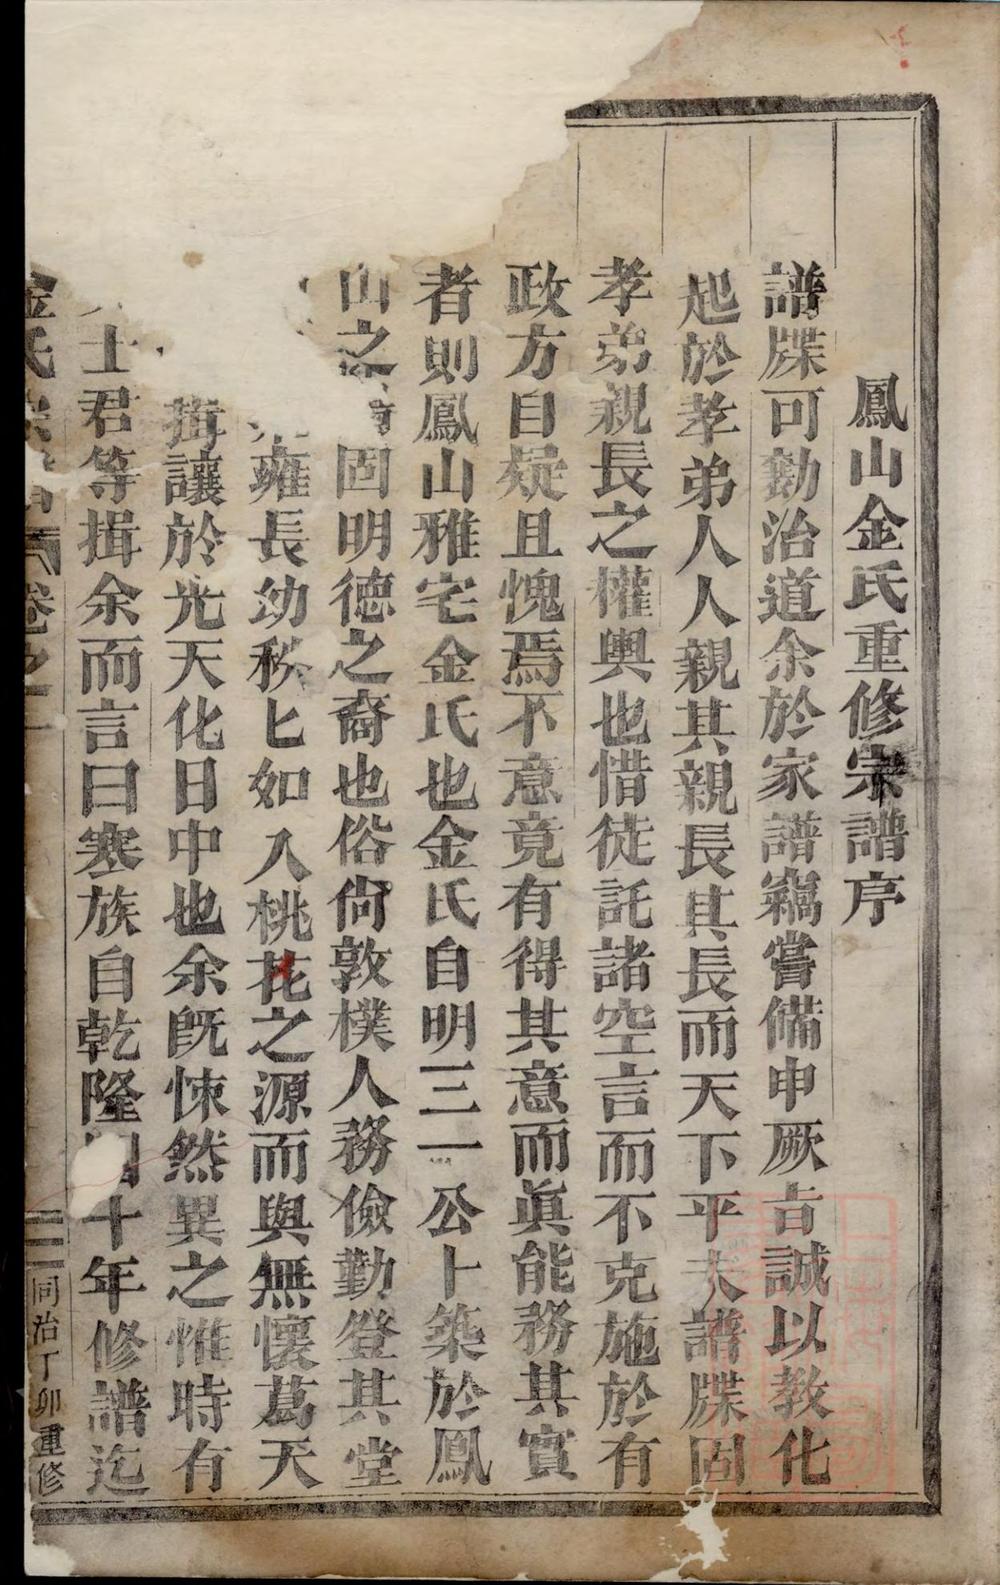 鳳山金氏重修宗譜序
譜牒可勷治道余於家譜竊嘗備申厥古誠以教化
起於孝弟人人親其親長其長而天下平夫譜牒固
孝弟親長之權輿也惜徒託諸空言而不克施於有
政方自疑且愧焉不意竟有得其意而眞能務其實
者則鳳山雅宅金氏也金氏自明三一公卜築於鳳
山之 固明德之裔也俗尙敦樸人務儉勤登其堂
雍長幼秩匕如入桃花之源而與無懷葛天
揖讓於光天化日中也余旣悚然異之惟時有
士君等揖余而言曰塞族自乾隆四十年修譜迄
金氏宗譜 卷之一 三 同治丁卯重修